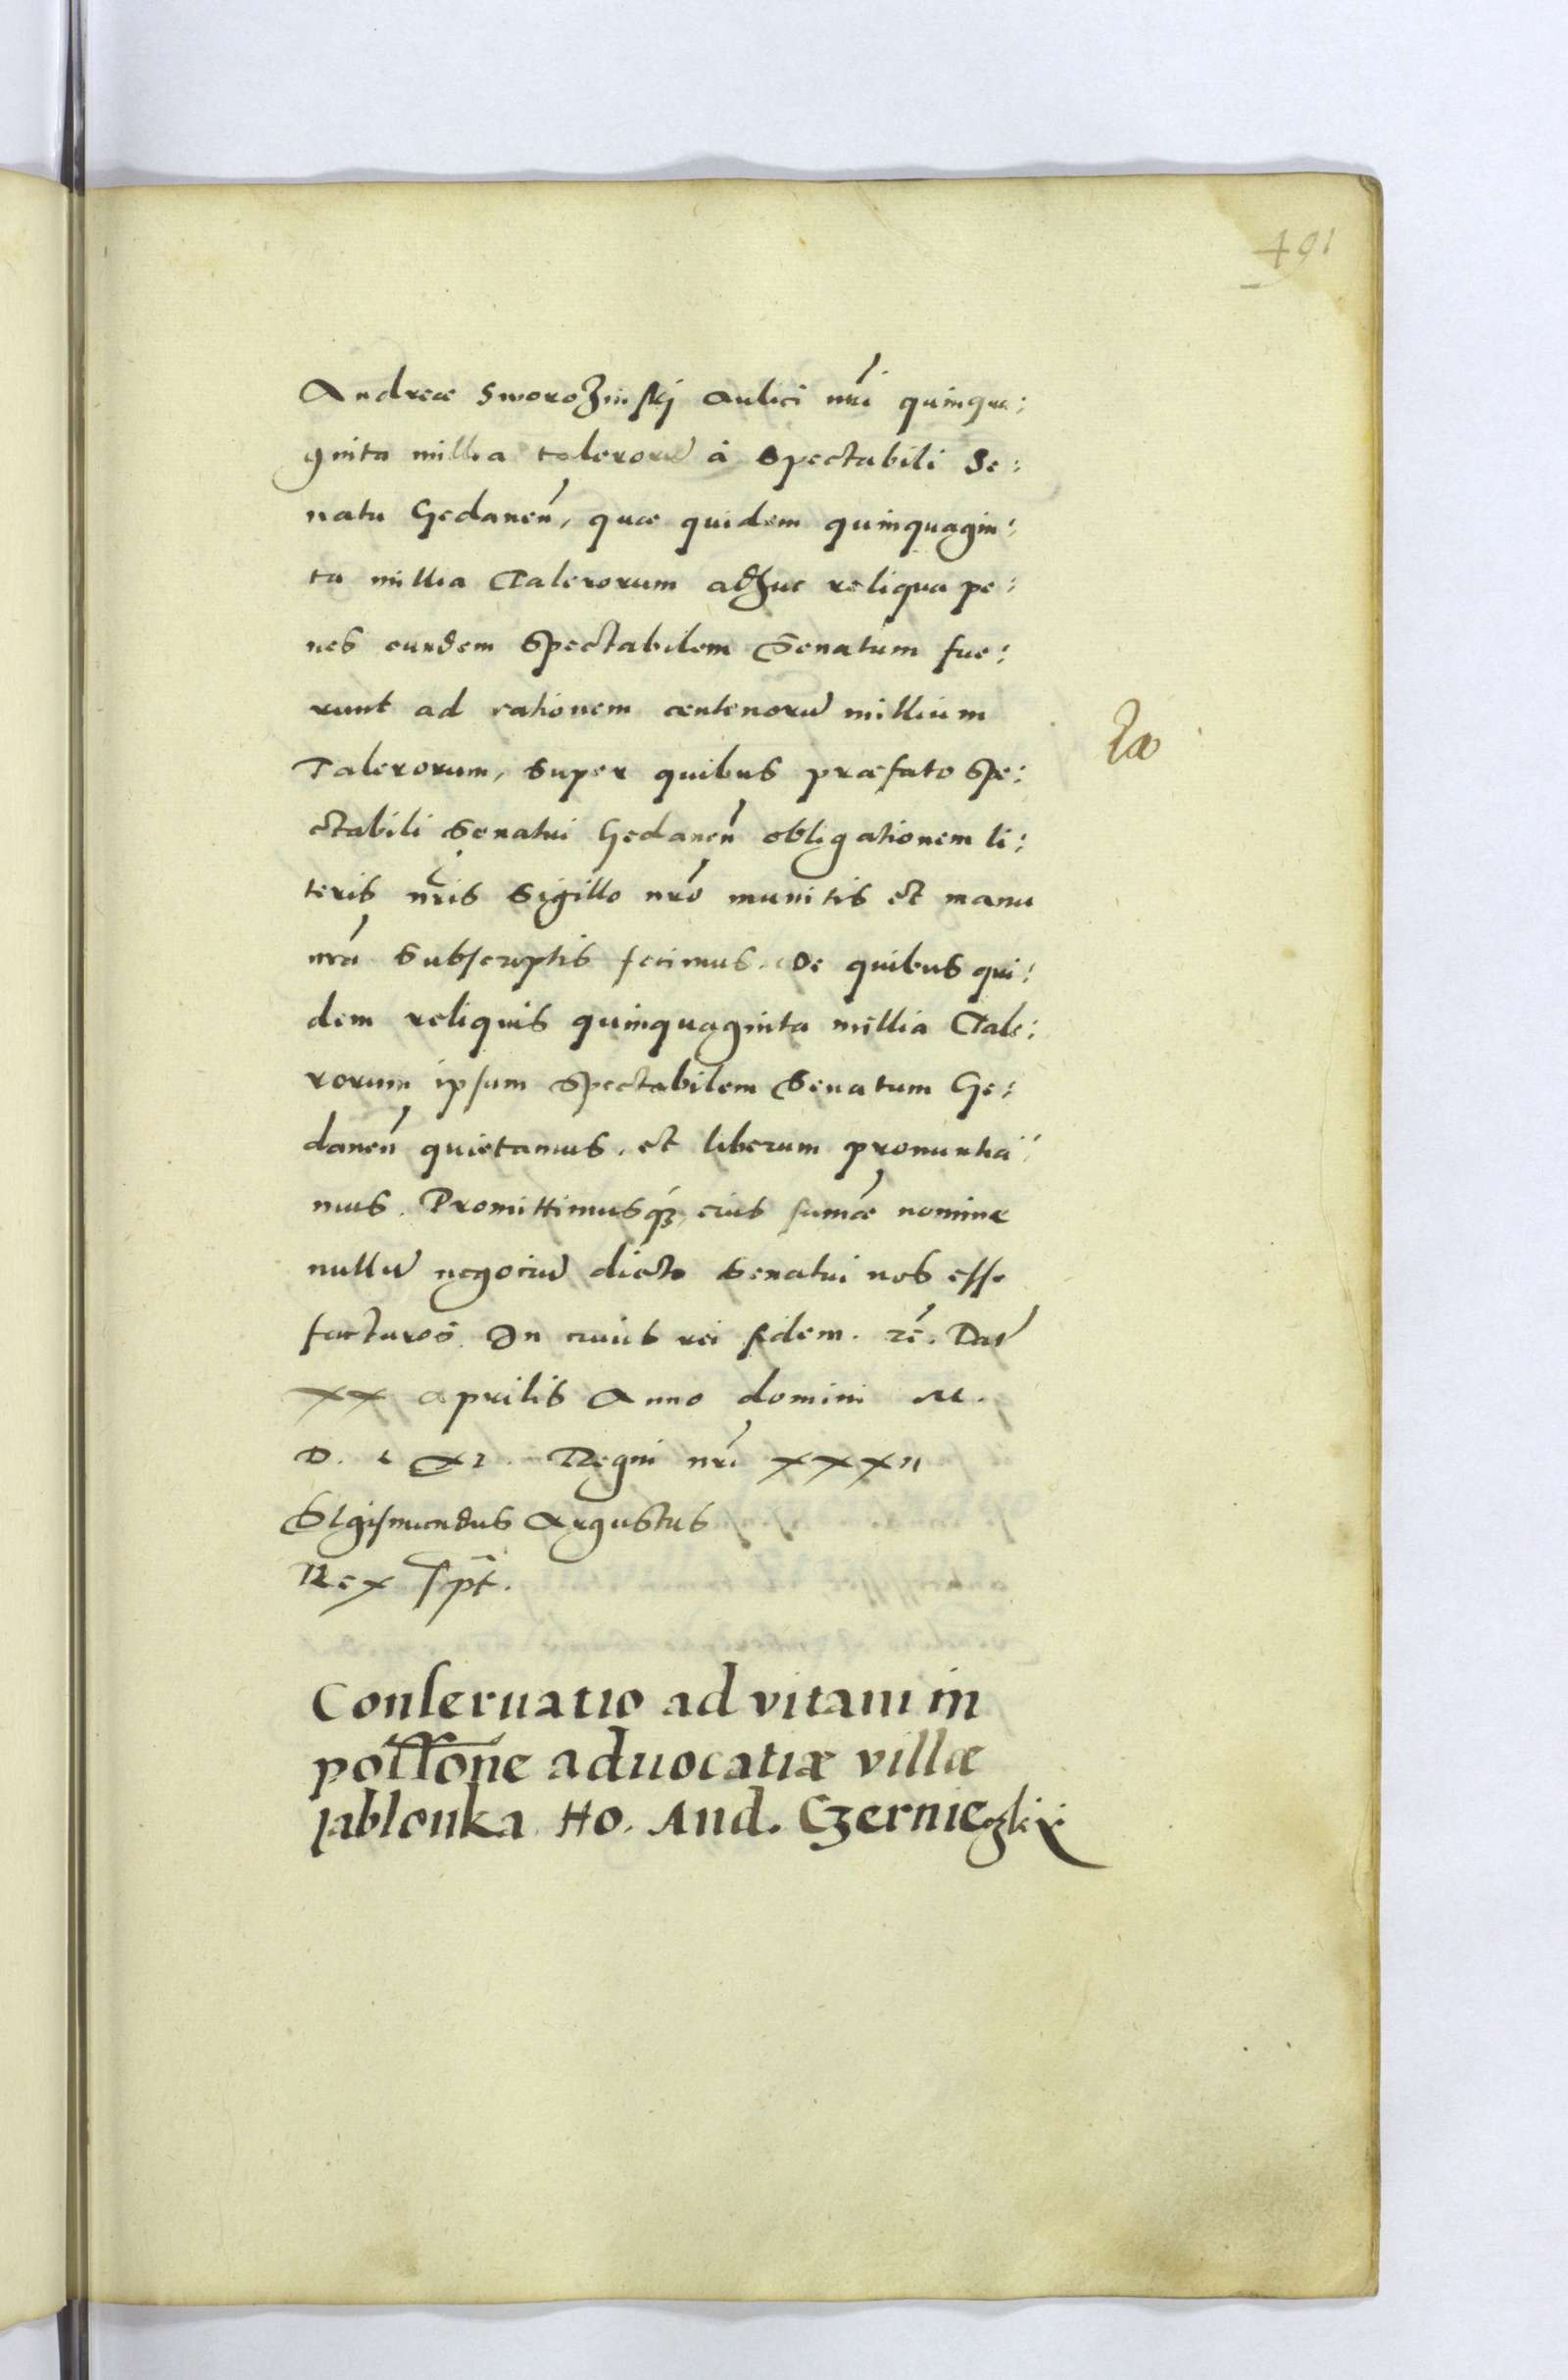 491
Andreæ Sworozinskj Aulici nr̃i quinqua:
ginta millia talerorũ à Spectabili Se:
natu Gedaneñ, quæ quidem quinquagin:
ta millia Talerorum adhuc reliqua pe:
nes eundem Spectabilem Senatum fue:
runt ad rationem centenorũ millium
Talerorum, super quibus præfato Spe:
ctabili Senatui Gedaneñ obligationem li:
teris nr̃is Sigillo nr̃o munitis et manu
nr̃a Subscriptis fecimus. De quibus qui:
dem reliquis quinquaginta millia Tale:
rorum ipsum Spectabilem Senatum Ge:
daneñ quietamus, et liberum pronuntia:
mus. Promittimusq́ꝫ eius sum̃æ nomine
nullũ negociũ dicto Senatui nos esse
facturos. In cuius rei fidem. &c̃. Dat̃
XX Aprilis Anno domini M.
D. LXI. Regni nr̃i XXXII
Sigismundus Augustus
Rex sp̃t.
Conseruatio ad vitam in
possõne aduocatiæ villæ
Jablonka Ho. And. Czernie